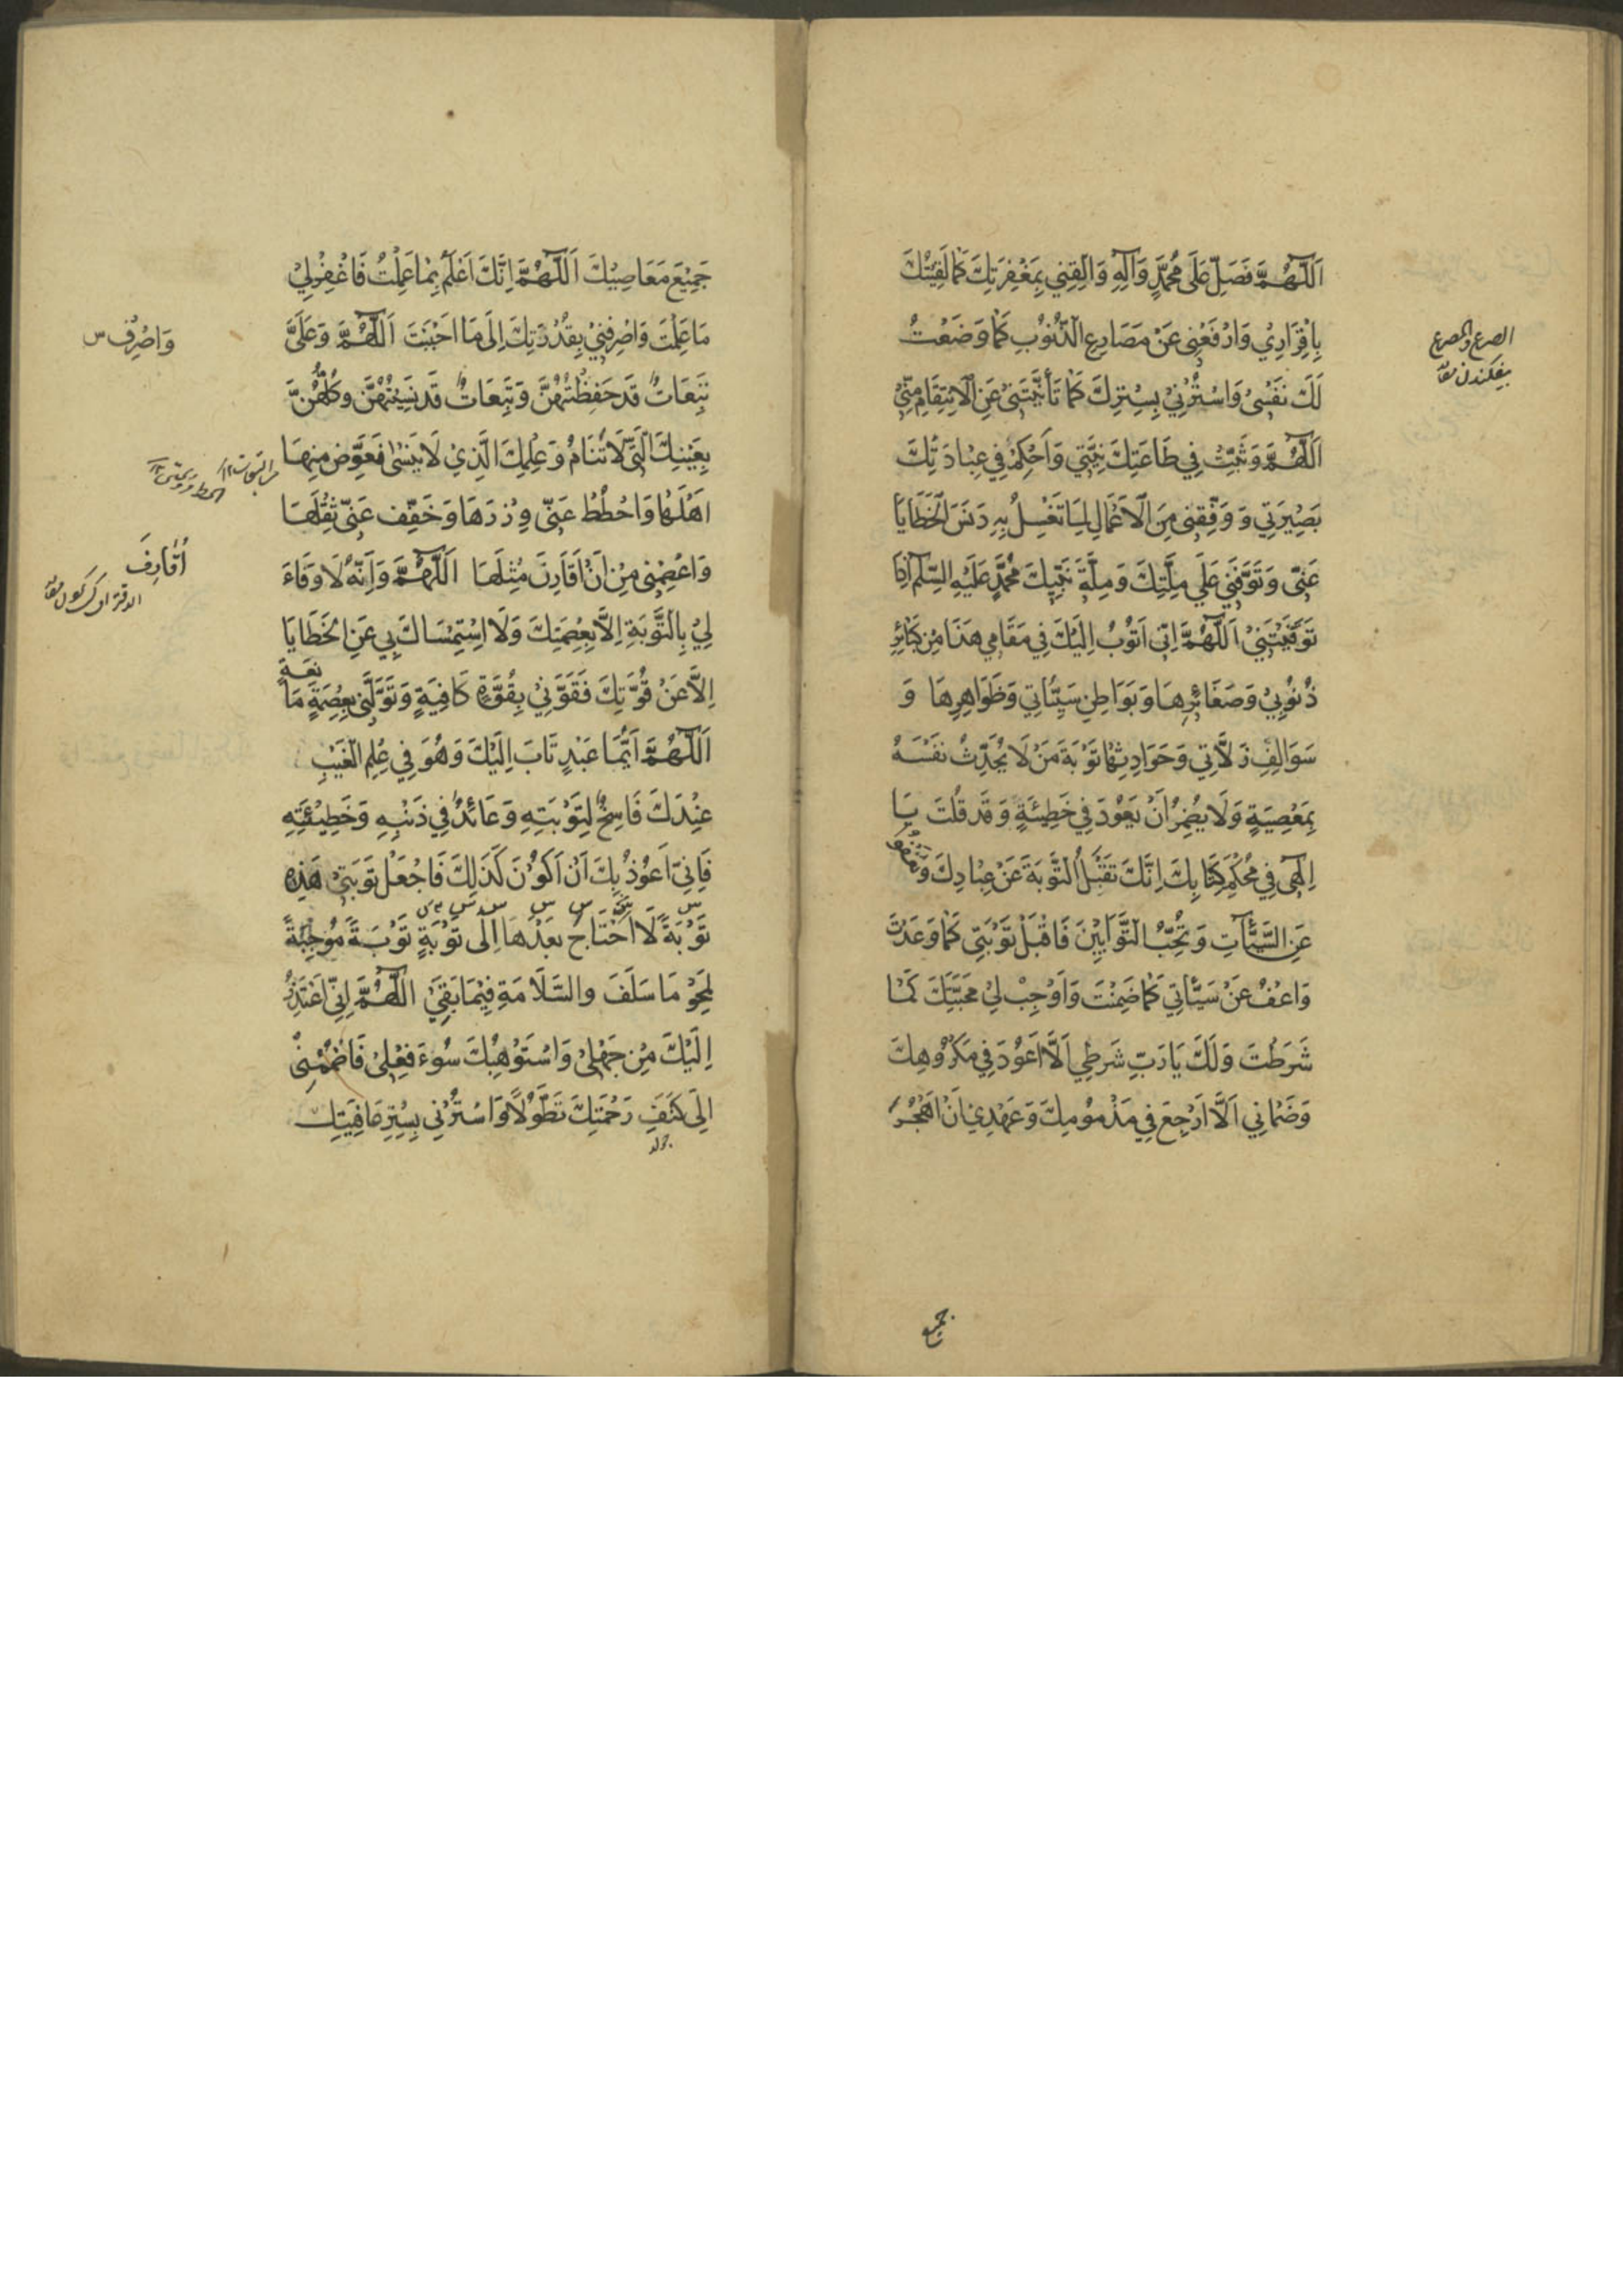 اَللّٰهُمَّ فَصَلِّ عَلَى مُحَمَّدٍ وَآلِهِ وَالْقِنِي بِمَغْفِرَتِكَ كَمَا لَقِيتُكَ
بِاِقْرَارِي وَارْفَعْنِي عَنْ مَصَارِعِ الذُّنُوبِ كَمَا وَضَعْتُ
لَكَ نَفْسِي وَاسْتُرْنِي بِسِتْرِكَ كَمَا تَأَنَّيْتَنِي عَنِ الْاِنْتِقَامِ مِنِّي
اَللّٰهُمَّ وَثَبِّتْ فِي طَاعَتِكَ نِيَّتِي وَاَحْكِمْ فِي عِبَادَتِكَ
بَصِيرَتِي وَ وَفِّقْنِي مِنَ الْاَعْمَالِ لِمَا تَغْسِلُ بِهِ دَنَسَ الْخَطَايَا
عَنِّي وَتَوَفَّنِي عَلَى مِلَّتِكَ وَمِلَّةِ نَبِيِّكَ مُحَمَّدٍ عَلَيْهِ السَّلَمُ اِذَا
تَوَفَّيْتَنِي اَللّٰهُمَّ اِنِّي اَتُوبُ اِلَيْكَ فِي مَقَامِي هَذَا مِنْ كَبَائِرِ
ذُنُوبِي وَصَغَائِرِهَا وَبَوَاطِنِ سَيِّئَاتِي وَظَوَاهِرِهَا وَ
سَوَالِفِ زَلَّاتِي وَحَوَادِثِهَا تَوْبَةَ مَنْ لَا يُحَدِّثُ نَفْسَهُ
بِمَعْصِيَةٍ وَلَا يُضْمِرُ اَنْ يَعُودَ فِي خَطِيئَةٍ وَقَدْ قُلْتَ يَا
اِلٰهِي فِي مُحْكَمِ كِتَابِكَ اِنَّكَ تَقْبَلُ التَّوْبَةَ عَنْ عِبَادِكَ وَتَعْفُو
عَنِ السَّيِّئَاتِ وَتُحِبُّ التَّوَّابِينَ فَاقْبَلْ تَوْبَتِي كَمَا وَعَدْتَ
وَاعْفُ عَنْ سَيِّئَاتِي كَمَا ضَمِنْتَ وَاَوْجِبْ لِي مَحَبَّتَكَ كَمَا
شَرَطْتَ وَلَكَ يَا رَبِّ شَرْطِي اَلَّا اَعُودَ فِي مَكْرُوهِكَ
وَضَمَانِي اَلَّا اَرْجِعَ فِي مَذْمُومِكَ وَعَهْدِي اَنْ اَهْجُرَ
الصرع والمصرع
بیفکندن
جمیع
جَمِيعَ مَعَاصِيكَ اَللّٰهُمَّ اِنَّكَ اَعْلَمُ بِمَا عَمِلْتُ فَاغْفِرْ لِي
مَا عَلِمْتَ وَاصْرِفْنِي بِقُدْرَتِكَ اِلَى مَا اَحْبَبْتَ اَللّٰهُمَّ وَعَلَيَّ
تَبِعَاتٌ قَدْ حَفِظْتُهُنَّ وَتَبِعَاتٌ قَدْ نَسِيتُهُنَّ وَكُلُّهُنَّ
بِعَيْنِكَ الَّتِي لَا تَنَامُ وَعِلْمِكَ الَّذِي لَا يَنْسَى فَعَوِّضْ مِنْهَا
اَهْلَهَا وَاحْطُطْ عَنِّي وِزْرَهَا وَخَفِّفْ عَنِّي ثِقْلَهَا
وَاعْصِمْنِي مِنْ اَنْ اُقَارِفَ مِثْلَهَا اَللّٰهُمَّ وَاِنَّهُ لَا وَفَاءَ
لِي بِالتَّوْبَةِ اِلَّا بِعِصْمَتِكَ وَلَا اسْتِمْسَاكَ بِي عَنِ الْخَطَايَا
اِلَّا عَنْ قُوَّتِكَ فَقَوِّنِي بِقُوَّةٍ كَافِيَةٍ وَتَوَلَّنِي بِعِصْمَةٍ مَانِعَةٍ
اَللّٰهُمَّ اَيُّمَا عَبْدٍ تَابَ اِلَيْكَ وَهُوَ فِي عِلْمِ الْغَيْبِ
عِنْدَكَ فَاسِخٌ لِتَوْبَتِهِ وَعَائِدٌ فِي ذَنْبِهِ وَخَطِيئَتِهِ
فَاِنِّي اَعُوذُ بِكَ اَنْ اَكُونَ كَذَلِكَ فَاجْعَلْ تَوْبَتِي هَذِهِ
تَوْبَةً لَا اَحْتَاجُ بَعْدَهَا اِلَى تَوْبَةٍ تَوْبَةً مُوجِبَةً
لِمَحْوِ مَا سَلَفَ والسَّلَامَةِ فِيمَا بَقِيَ اَللّٰهُمَّ اِنِّي اَعْتَذِرُ
اِلَيْكَ مِنْ جَهْلِي وَاسْتَوْهِبُكَ سُوءَ فِعْلِي فَاضْمُمْنِي
اِلَى كَنَفِ رَحْمَتِكَ تَطَوُّلًا وَاسْتُرْنِي بِسِتْرِ عَافِيَتِكَ
وَاصْرِفْ س
اُقَارِفَ